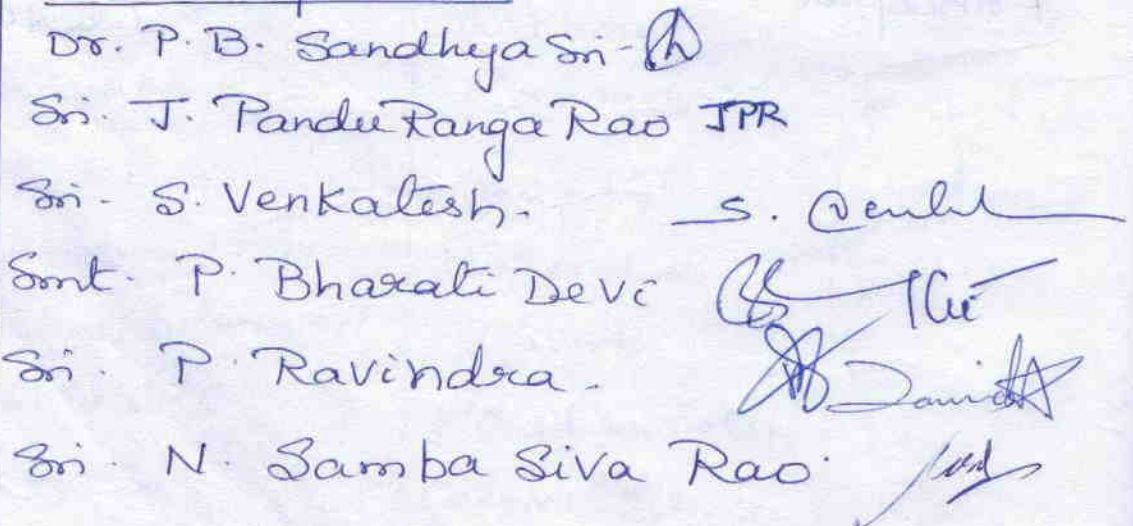 Dr. P. B. Sandhya Sri -
Sri. J. Pandu Ranga Rao JPR
Sri - S. Venkatesh. S.
Smt. P. Bharati Devi
Sri. P. Ravindra.
Sri. N. Samba Siva Rao.